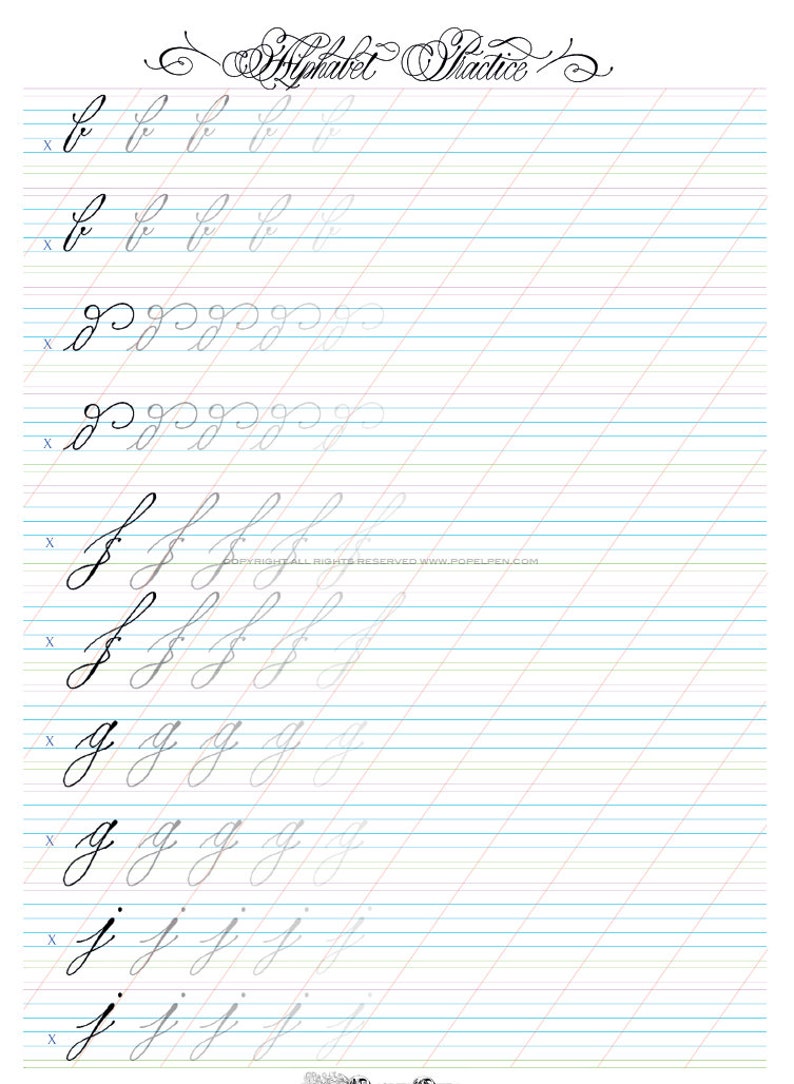 Alphabet Practice
x b b b b b
x b b b b b
x d d d d d
x d d d d d
x f f f f f
COPYRIGHT ALL RIGHTS RESERVED WWW.POPELPEN.COM
x f f f f f
x g g g g g
x g g g g g
x j j j j j
x j j j j j